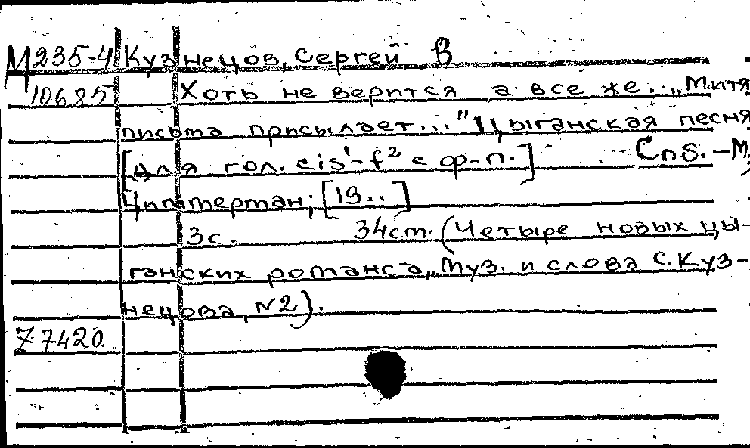 М235-4 Кузнецов, Сергей В
10685 Хоть не верится а все же... „Митя
письма присылает..." Цыганская песня
[для гол. cis¹-f² с ф-п.] Спб.-М,
Циммерман, [19..]
3с. 34см. (Четыре новых цы-
ганских романса, Муз. и слова С. Куз-
нецова, №2).
Z 7420